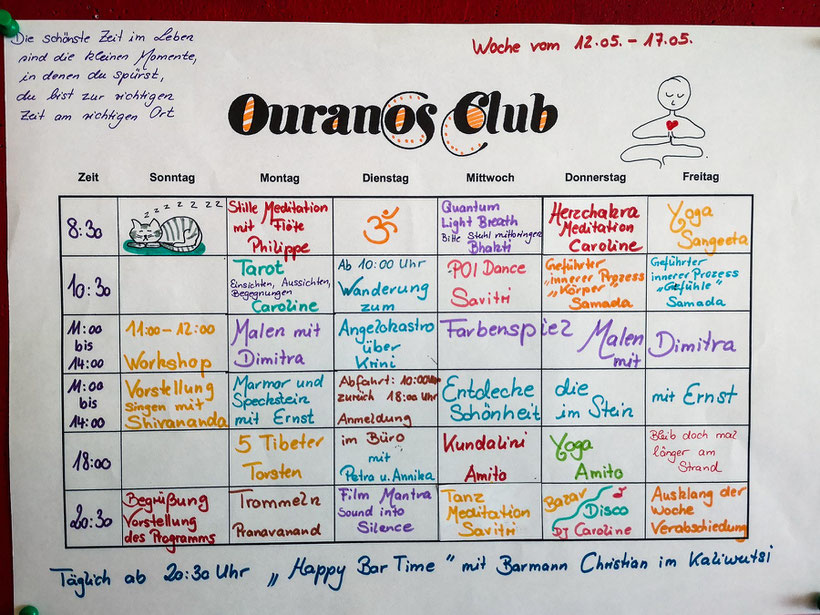 Die schönste Zeit im Leben
sind die kleinen Momente,
in denen du spürst,
du bist zur richtigen
Zeit am richtigen Ort
Woche vom 12.05. – 17.05.
Ouranos Club
Zeit Sonntag Montag Dienstag Mittwoch Donnerstag Freitag
8:30
z z z z z z z
Stille Meditation
mit Flöte
Philippe
ॐ
Quantum
Light Breath
Bitte Stuhl mitbringen
Bhakti
Herzchakra
Meditation
Caroline
Yoga
Sangeeta
10:30
Tarot
Einsichten, Aussichten,
Begegnungen
Caroline
Ab 10:00 Uhr
Wanderung
zum
POI Dance
Savitri
Geführter
"innerer Prozess
"Körper"
Samada
Geführter
innerer Prozess
"Gefühle"
Samada
11:00
bis
14:00
11:00 – 12:00
Workshop
Malen mit
Dimitra
Angelokastro
über
Krini
Farbenspiel Malen
mit Dimitra
11:00
bis
14:00
Vorstellung
Singen mit
Shivananda
Marmor und
Speckstein
mit Ernst
Abfahrt: 10:00Uhr
zurück 18:00 Uhr
Anmeldung
Entdecke die
Schönheit im Stein
mit Ernst
18:00
5 Tibeter
Torsten
im Büro
mit
Petra u. Annika
Kundalini
Amito
Yoga
Amito
Bleib doch mal
länger am
Strand
20:30
Begrüßung
Vorstellung
des Programms
Trommeln
Pranavanand
Film Mantra
Sound into
Silence
Tanz
Meditation
Savitri
Bazar
Disco
DJ Caroline
Ausklang der
Woche
Verabschiedung
Täglich ab 20:30 Uhr „Happy Bar Time" mit Barmann Christian im Kaliwutsi